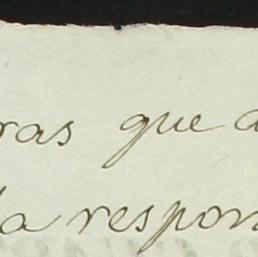 ras que a
la respon